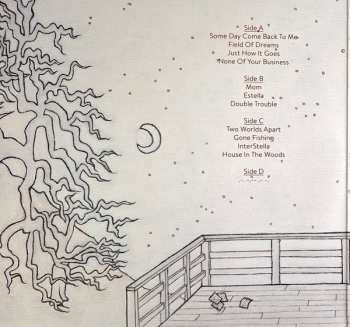 Side A
Some Day Come Back To Me
Field Of Dreams
Just How It Goes
None Of Your Business
Side B
Mom
Estella
Double Trouble
Side C
Two Worlds Apart
Gone Fishing
InterStella
House In The Woods
Side D